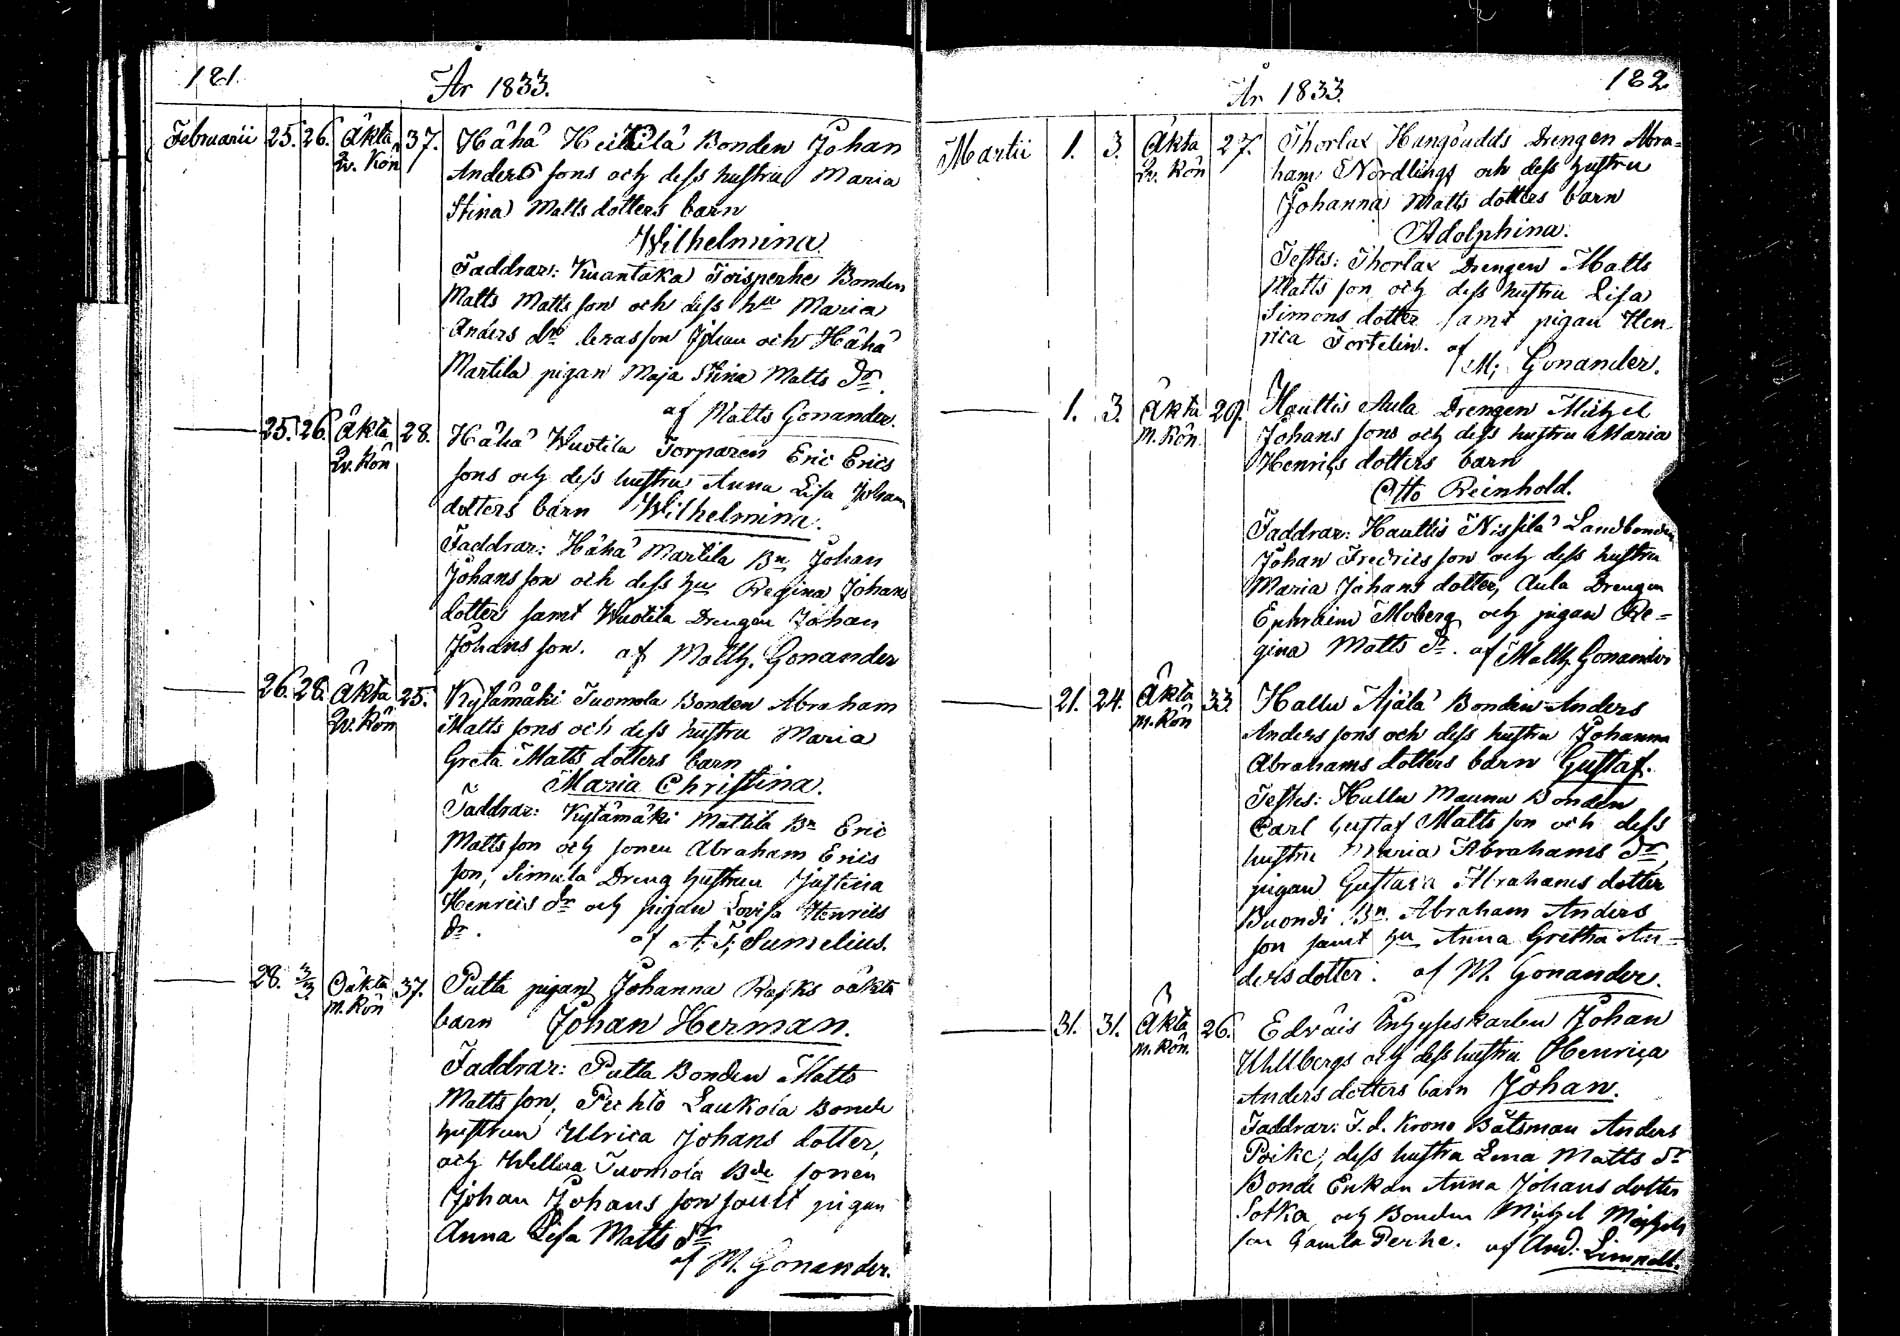 121.
År 1833.
Februarii 25. 26. Äkta 37. Håhå Heikkilä Bonden Johan
Qv. Kön Anders sons och dess hustru Maria
Stina Matts dotters barn
Wilhelmina
Faddrar: Kuantaka Torsperhe Bonden
Matts Matts son och dess hu Maria
Anders dr Johan och Håhå
Martila pigan Maja Stina Matts dr.
af Matts Gonander.
25. 26. Äkta 28. Håhå Wuotila Torparen Eric Erics
Qv. Kön sons och dess hustru Anna Lisa Johans
dotters barn Wilhelmina.
Faddrar: Håhå Martila Bn Johan
Johans son och dess hu Regina Johans
dotter samt Wuotila Drengen Johan
Johans son. af Matth. Gonander
26. 28. Äkta 25. Kytämäki Tuomola Bonden Abraham
Qv. Kön Matts sons och dess hustru Maria
Greta Matts dotters barn
Maria Christina.
Faddrar: Kytämäki Mattila Bn Eric
Matts son och sonen Abraham Erics
son, Simula Dreng hustrun Justina
Henrics dr och pigan Lovisa Henrics
dr. af A. F. Sumelius.
28. 3/3 Oäkta 37. Putta pigan Johanna Rasks oäkta
m. Kön barn Johan Herman.
Faddrar: Putta Bonden Matts
Matts son, Pechto Laukola Bonde
hustrun Ulrica Johans dotter,
och Wellua Tuomola Bde sonen
Johan Johans son samt pigan
Anna Lisa Matts dr
af M. Gonander.
122.
År 1833.
Martii 1. 3. Äkta 27. Thorlax Hangoudds Drengen Abra=
Qv. Kön ham Nordlings och dess hustru
Johanna Matts dotters barn
Adolphina.
Testes: Thorlax Drengen Matts
Matts son och dess hustru Lisa
Simons dotter samt pigan Hen-
rica Fortelin. af
M; Gonander.
1. 3. Äkta 29. Haultis Aula Drengen Michel
m. Kön. Johans sons och dess hustru Maria
Henrics dotters barn
Otto Reinhold.
Faddrar: Haultis Nissilä Landbonden
Johan Fredrics son och dess hustru
Maria Johans dotter, Aula Drengen
Ephraim Moberg och pigan Re=
gina Matts dr. af Matth Gonander
21. 24. Äkta 33 Hallu Äjälä Bonden Anders
m. Kön Anders sons och dess hustru Johanna
Abrahams dotters barn Gustaf.
Testes: Hallu Maunu Bonden
Carl Gustaf Matts son och dess
hustru Maria Abrahams dr,
pigan Gustava Abrahams dotter
Buondi Bn. Abraham Anders
son samt hu Anna Gretha An=
ders dotter. af M. Gonander.
31. 31. Äkta 26. Edväis Inhyseskarlen Johan
m. Kön. Uhllbergs och dess hustru Henrica
Anders dotters barn Johan.
Faddrar: F. d. Krono Båtsman Anders
Poike, dess hustru Lena Matts dr
Bonde Enkan Anna Johans dotter
Sotka, och Bonden Michel Michels
son Gamla Perhe. af And: Limnell.